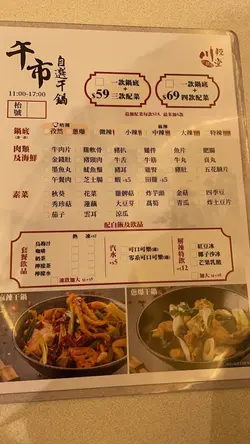 午市
自選干鍋
11:00-17:00
枱號
一款鍋底
+
$59 三款配菜
一款鍋底
+
$69 四款配菜
鍋底 孜然 蔥爆 微辣 小辣 中辣 大辣
肉類及海鮮 牛肉片 雞軟骨 豬扒 雞件 魚片 肥腸
金錢肚 豬頸肉 牛舌 牛筋 牛丸 貢丸
墨魚丸 魷魚鬚 雞翼 雞腎 豬肚 五花腩片
午餐肉 芝士腸
素菜 秋葵 花菜 炸芋頭 金菇 四季豆
秀珍菇 蓮藕 大豆芽 茼蒿 青瓜 炸土豆片
茄子 雲耳 涼瓜
配白飯及飲品
套餐飲品
熱 凍
烏龍茶
咖啡
奶茶
檸檬茶
檸檬水
汽水 +$5
可口可樂
零系可口可樂
特飲 +$12
紅豆冰
椰子沙冰
芒果乳酪
麻辣干鍋
蔥爆干鍋